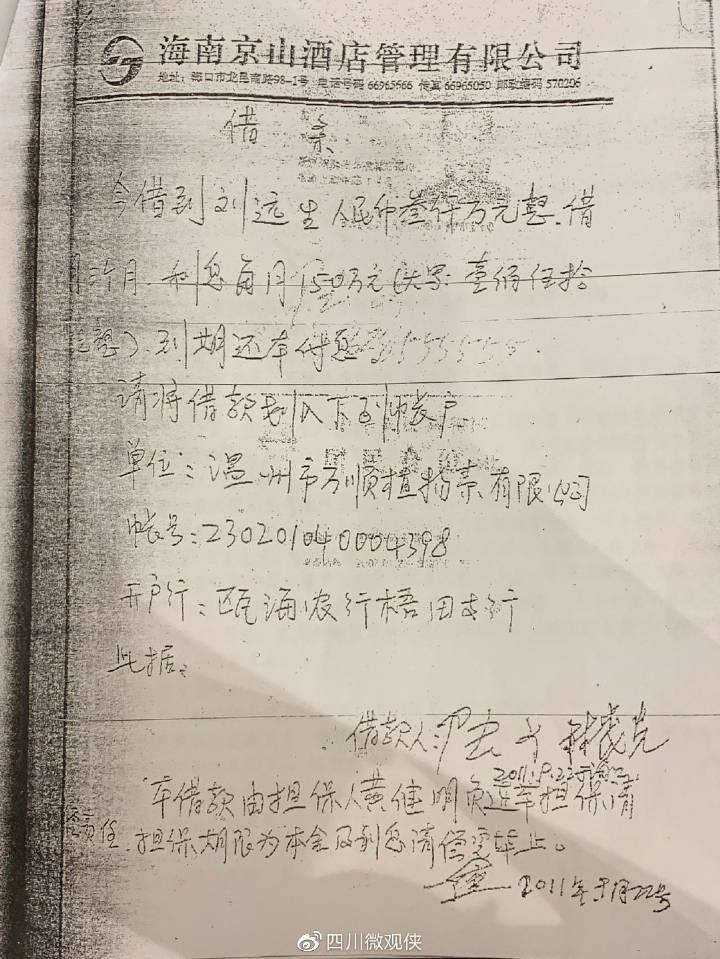 海南京山酒店管理有限公司
地址：海口市龙昆南路98-1号 电话号码 66965566 传真 66965050 邮政编码 570206
借条
今借到刘远生人民币叁仟万元整.借
月.利息每月150万元(大写:壹佰伍拾
整).到期还本付息
请将借款划入下列帐户
单位:温州市万顺植物蒸有限公司
帐号:230201040004398
开户行:瓯海农行梧田支行
此据.
借款人:
2011.9.22
本借款由担保人黄健明负连带担保清
责任.担保期限为本金及利息清偿完毕止。
2011年9月22号
四川微观侠